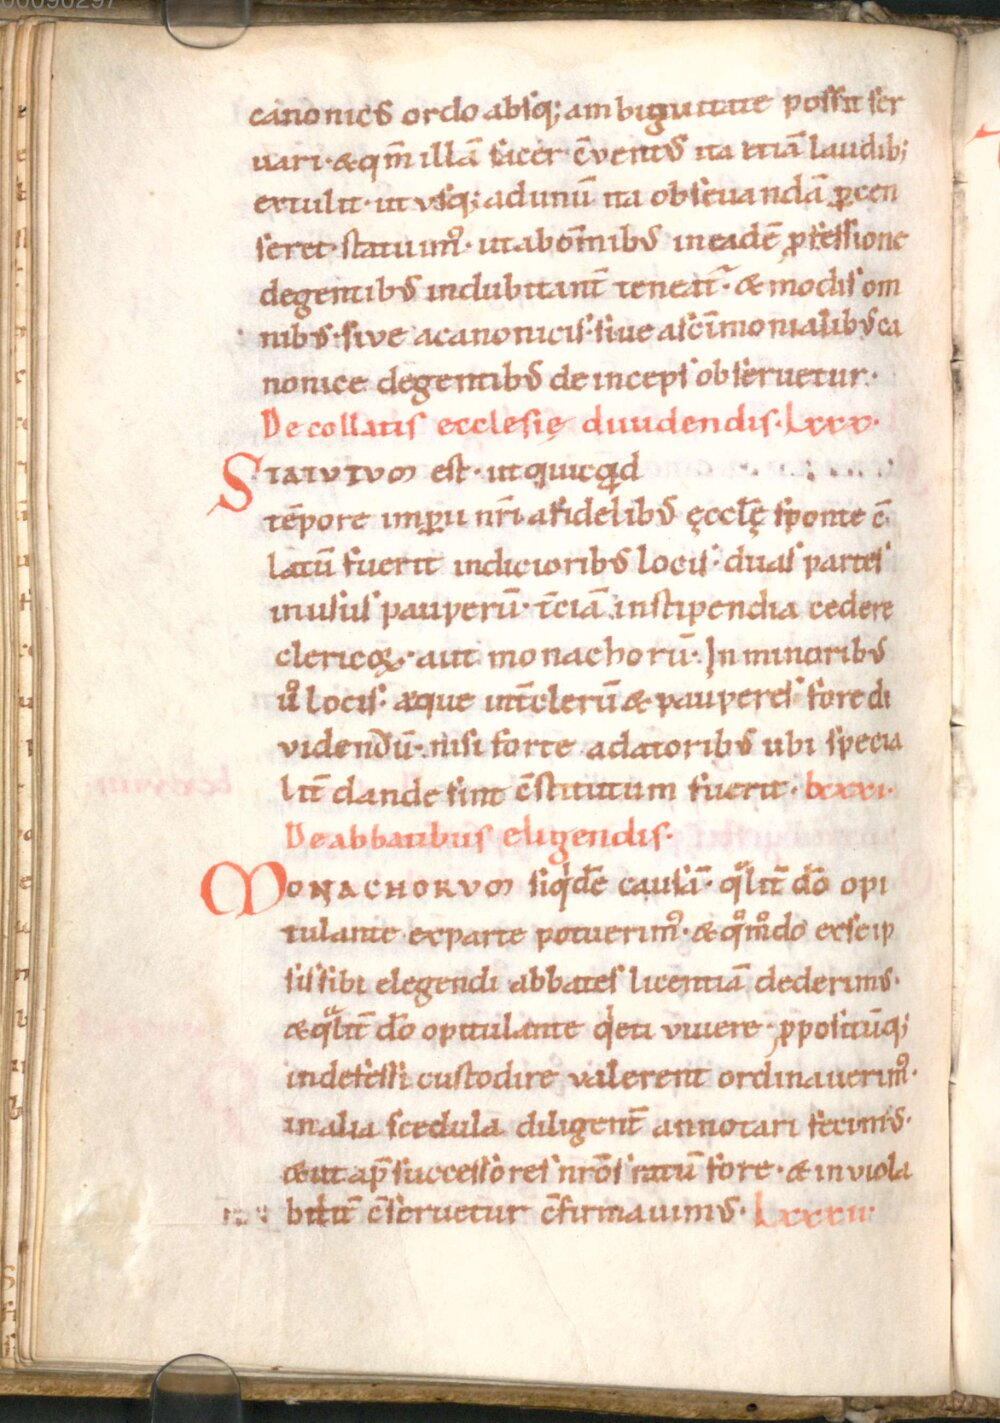 canonicꝰ ordo absq; ambiguitate possit ser
uari· & qm̄ illā sacer c̄ventꝰ ita etiā laudib;
extulit· ut vsq; ad unū ita obseruandā ꝑcen
seret· statuim᷒· ut ab om̄ibꝰ in eadē ꝓfessione
degentibꝰ indubitant̄ teneat᷑· & modis om
nibꝰ· sive a canonicis· siue a sc̄imonialibꝰ ca
nonice degentibꝰ deinceps obseruetur·
De collatis ecclesię diuidendis· Lxxx·
STATVTVM est· ut quicqd
tēpore imꝑii nr̄i a fidelibꝰ ęccl̄ę sponte c̄
latū fuerit in dicioribꝰ locis· duas partes
in usus pauperū· t̄ciā in stipendia cedere
clericoꝝ· aut monachorū· In minoribꝰ
u̅ locis· æque int̄ clerū & pauperes fore di
videndū· nisi forte a datoribꝰ ubi specia
lit̄ dande sint c̄stitutum fuerit· lxxxi·
De abbatibus eligendis·
MONACHORVM siqͥdē causā· qͣlit̄ dō opi
tulante ex parte potuerim᷒· & qͦmͦdo ex se ip
sis sibi elegendi abbates licentiā dederimꝰ·
& qͣlit̄ dō opitulante qͥeti vivere ꝓpositūq;
indefessi custodire valerent ordinauerim᷒·
in alia scedula diligent̄ annotari fecimꝰ·
& ut ap̄ successores nr̄os ratū fore· & inviola
bilit̄ c̄seruetur c̄firmauimꝰ· Lxxxii·